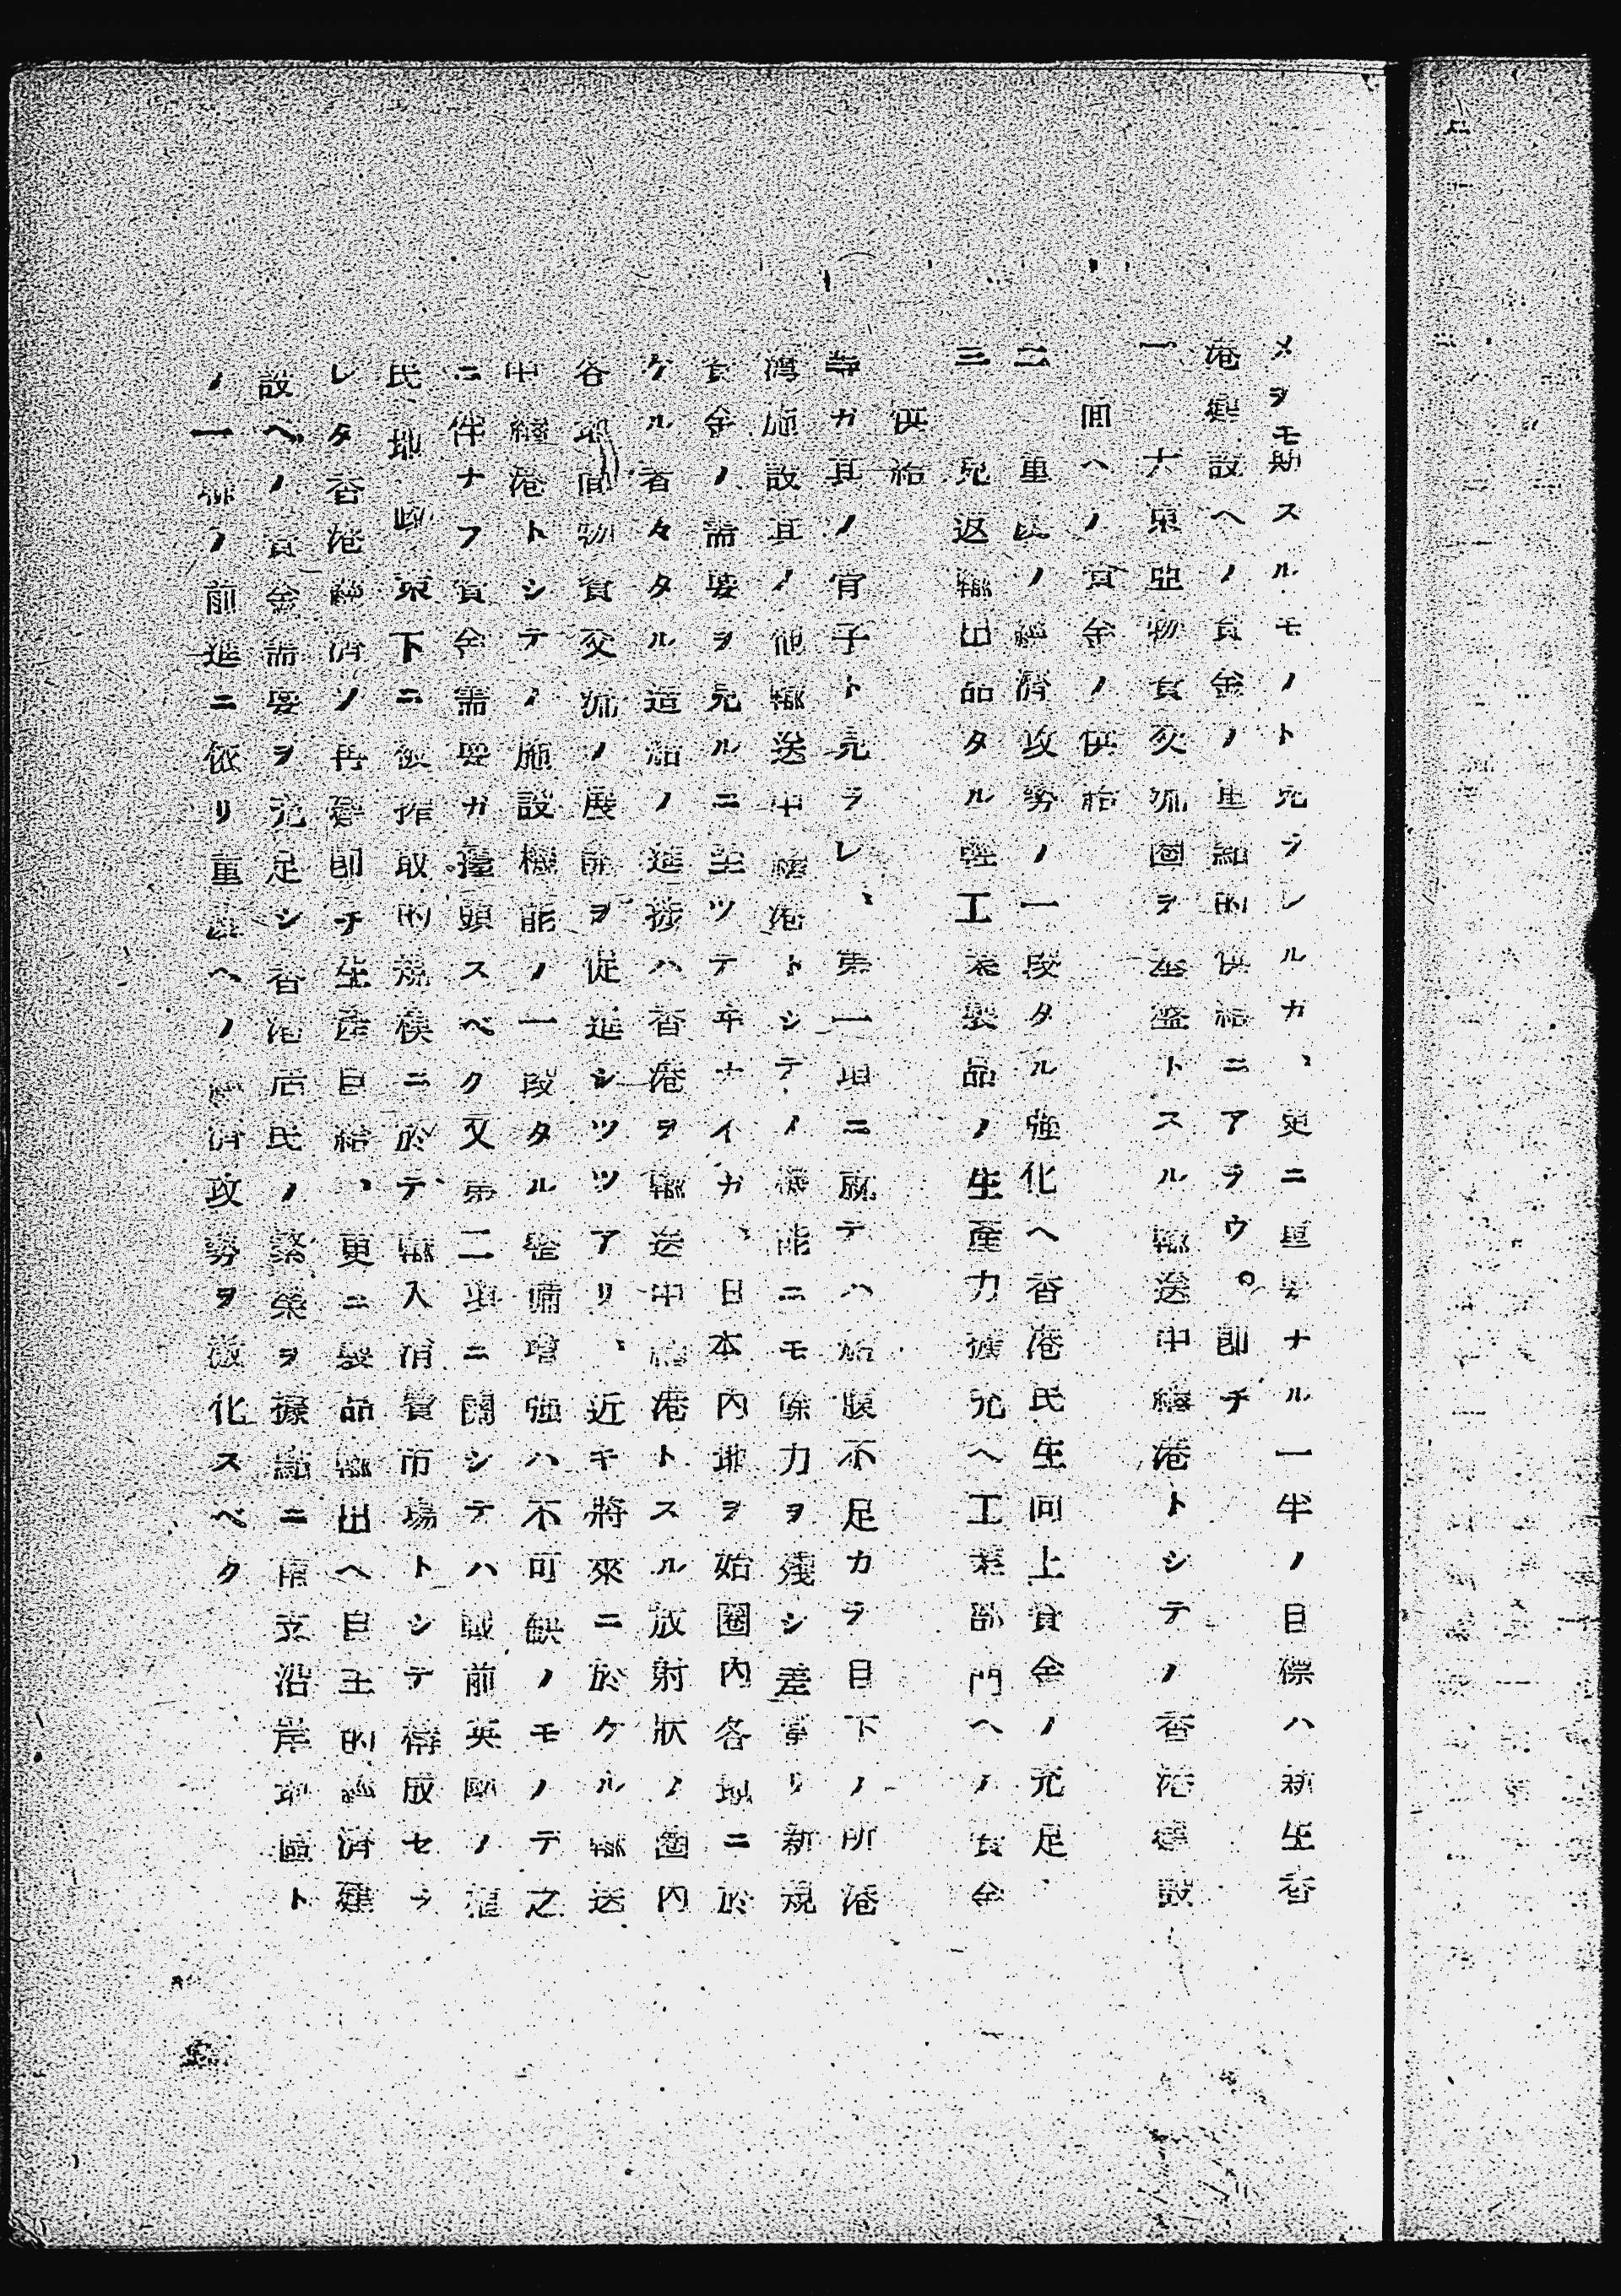 メヲモ期スルモノト見ラレルカ、更ニ重要ナル一半ノ目標ハ新生香
港建設ヘノ資金ノ重點的供給ニアラウ。卽チ
一 大東亞物資交流圈ヲ基盤トスル輸送中繼港トシテノ香港建設
面ヘノ資金ノ供給
二 重慶ノ經濟攻勢ノ一段タル強化ヘ香港民生向上資金ノ充足
三 見返輸出品タル輕工業製品ノ生產力擴充ヘ工業部門ヘノ資金
供給
等ガ其ノ骨子ト見ラレ、第一項ニ就テハ船腹不足カラ目下ノ所港
灣施設其ノ他輸送中繼港トシテノ機能ニモ餘力ヲ殘シ差當リ新規
資金ノ需要ヲ見ルニ至ツテヰナイガ、日本內地ヲ始圈內各地ニ於
ケル着々タル造船ノ進捗ハ香港ヲ輸送中繼港トスル放射狀ノ圈內
各地間物資交流ノ展開ヲ促進シツツアリ、近キ將來ニ於ケル輸送
中繼港トシテノ施設機能ノ一段タル整備增強ハ不可缺ノモノデ之
ニ伴ナフ資金需要ガ擡頭スベク又第二項ニ關シテハ戰前英國ノ植
民地政策下ニ搾取的規模ニ於テ輸入消費市場トシテ構成セラ
レタ香港經濟ノ再建卽チ生產自給、更ニ製品輸出ヘ自主的經濟建
設ヘノ資金需要ヲ充足シ香港居民ノ繁榮ヲ據點ニ南支沿岸地區ト
ノ一前進ニ依リ重慶ヘノ經濟攻勢ヲ激化スベク